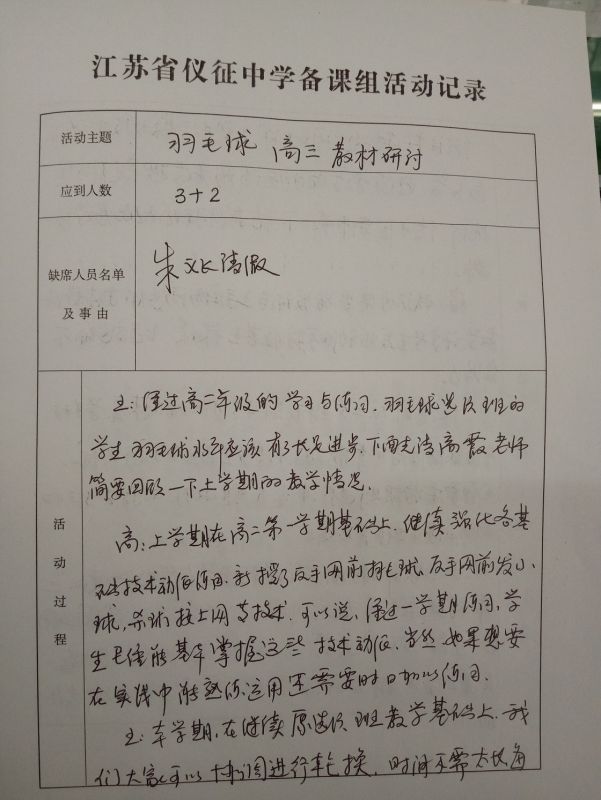 江苏省仪征中学备课组活动记录
活动主题
羽毛球 高三 教材研讨
应到人数
3+2
缺席人员名单
及事由
朱 请假
活动过程
王:通过高二年级的学习与练习,羽毛球选项班的
学生羽毛球水平应该有了长足进步,下面先请高霞老师
简要回顾一下上学期的教学情况。
高:上学期在高二第一学期基础上,继续强化各基
本技术动作练习,新授了反手网前挑球、反手网前发小
球,杀球接上网等技术,可以说,通过一学期练习,学
生已经能基本掌握这些技术动作,当然如果想要
在实践中能熟练运用还需要时日加以练习。
王:本学期,在继续原选项班教学基础上,我
们大家可以 进行轮换,时间不需太长,每